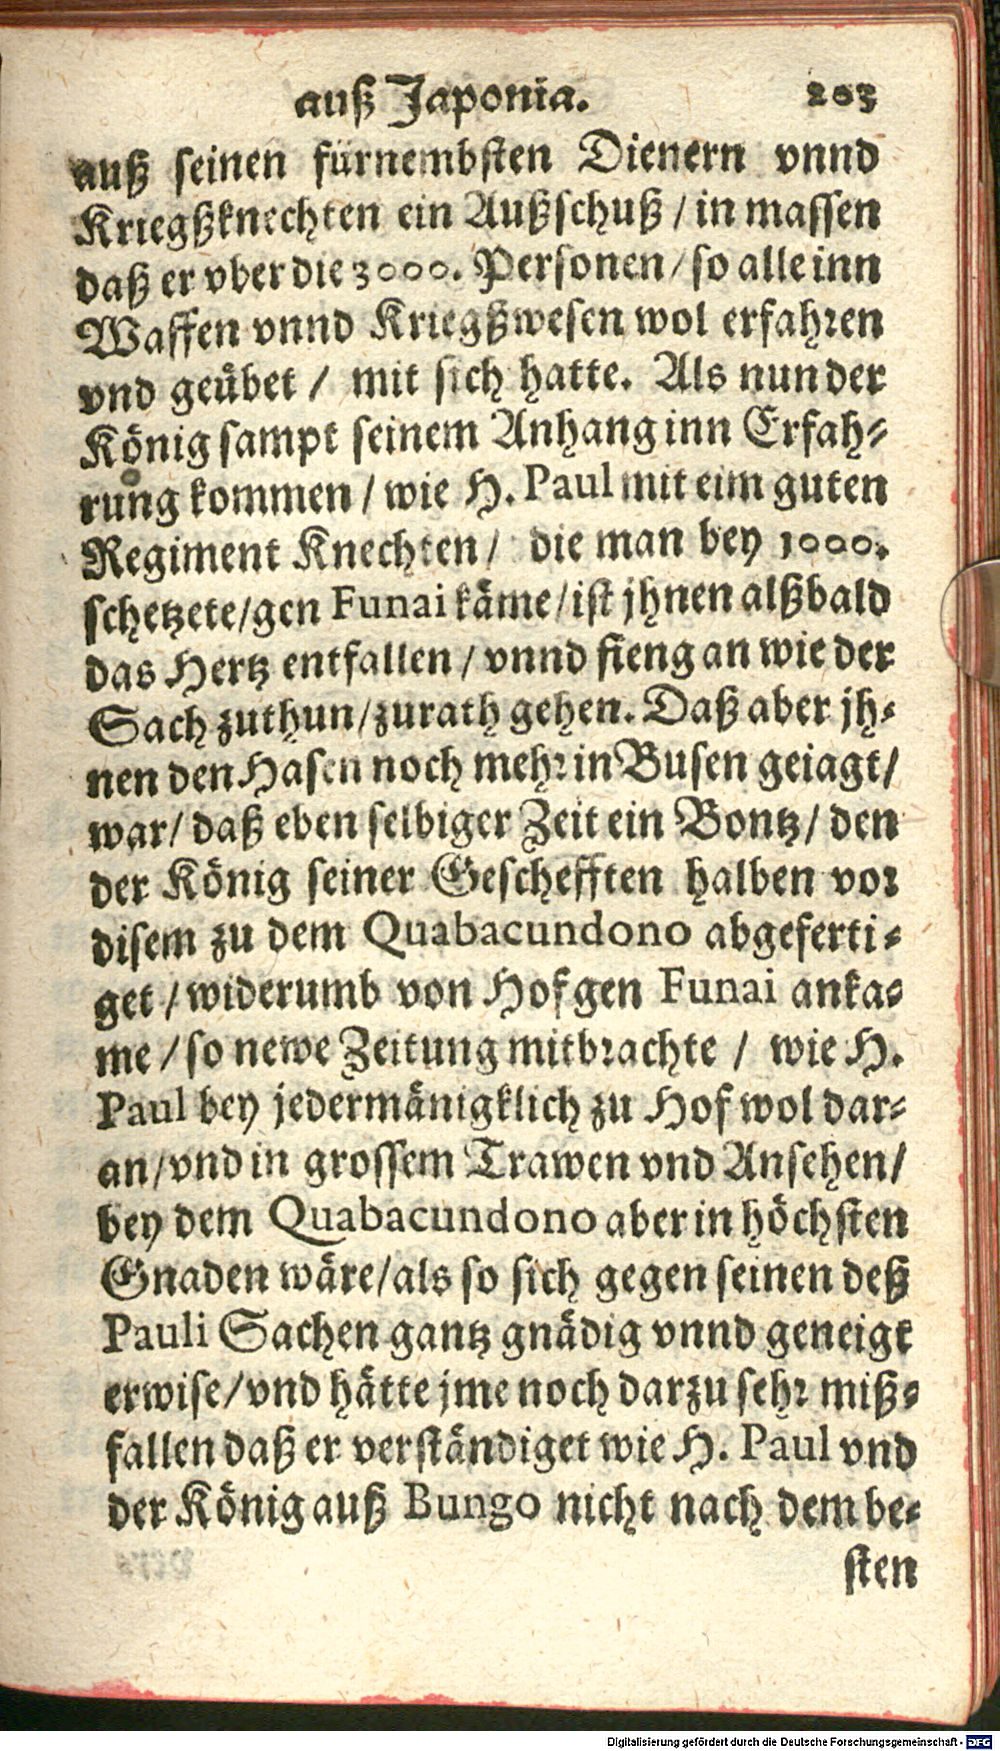 auß Japonia. 203
auß seinen fürnembsten Dienern vnnd
Kriegßknechten ein Außschuß / in massen
daß er vber die 3000. Personen / so alle inn
Waffen vnnd Kriegßwesen wol erfahren
vnd geübet / mit sich hatte. Als nun der
König sampt seinem Anhang inn Erfah-
rung kommen / wie H. Paul mit eim guten
Regiment Knechten / die man bey 1000.
schetzete / gen Funai käme / ist jhnen alßbald
das Hertz entfallen / vnnd fieng an wie der
Sach zuthun / zurath gehen. Daß aber jh-
nen den Hasen noch mehr in Busen geiagt /
war / daß eben selbiger Zeit ein Bontz / den
der König seiner Geschefften halben vor
disem zu dem Quabacundono abgeferti-
get / widerumb von Hof gen Funai anka-
me / so newe Zeitung mitbrachte / wie H.
Paul bey jedermänigklich zu Hof wol dar-
an / vnd in grossem Trawen vnd Ansehen /
bey dem Quabacundono aber in höchsten
Gnaden wäre / als so sich gegen seinen deß
Pauli Sachen gantz gnädig vnnd geneigt
erwise / vnd hätte jme noch darzu sehr miß-
fallen daß er verständiget wie H. Paul vnd
der König auß Bungo nicht nach dem be-
sten
Digitalisierung gefördert durch die Deutsche Forschungsgemeinschaft - DFG